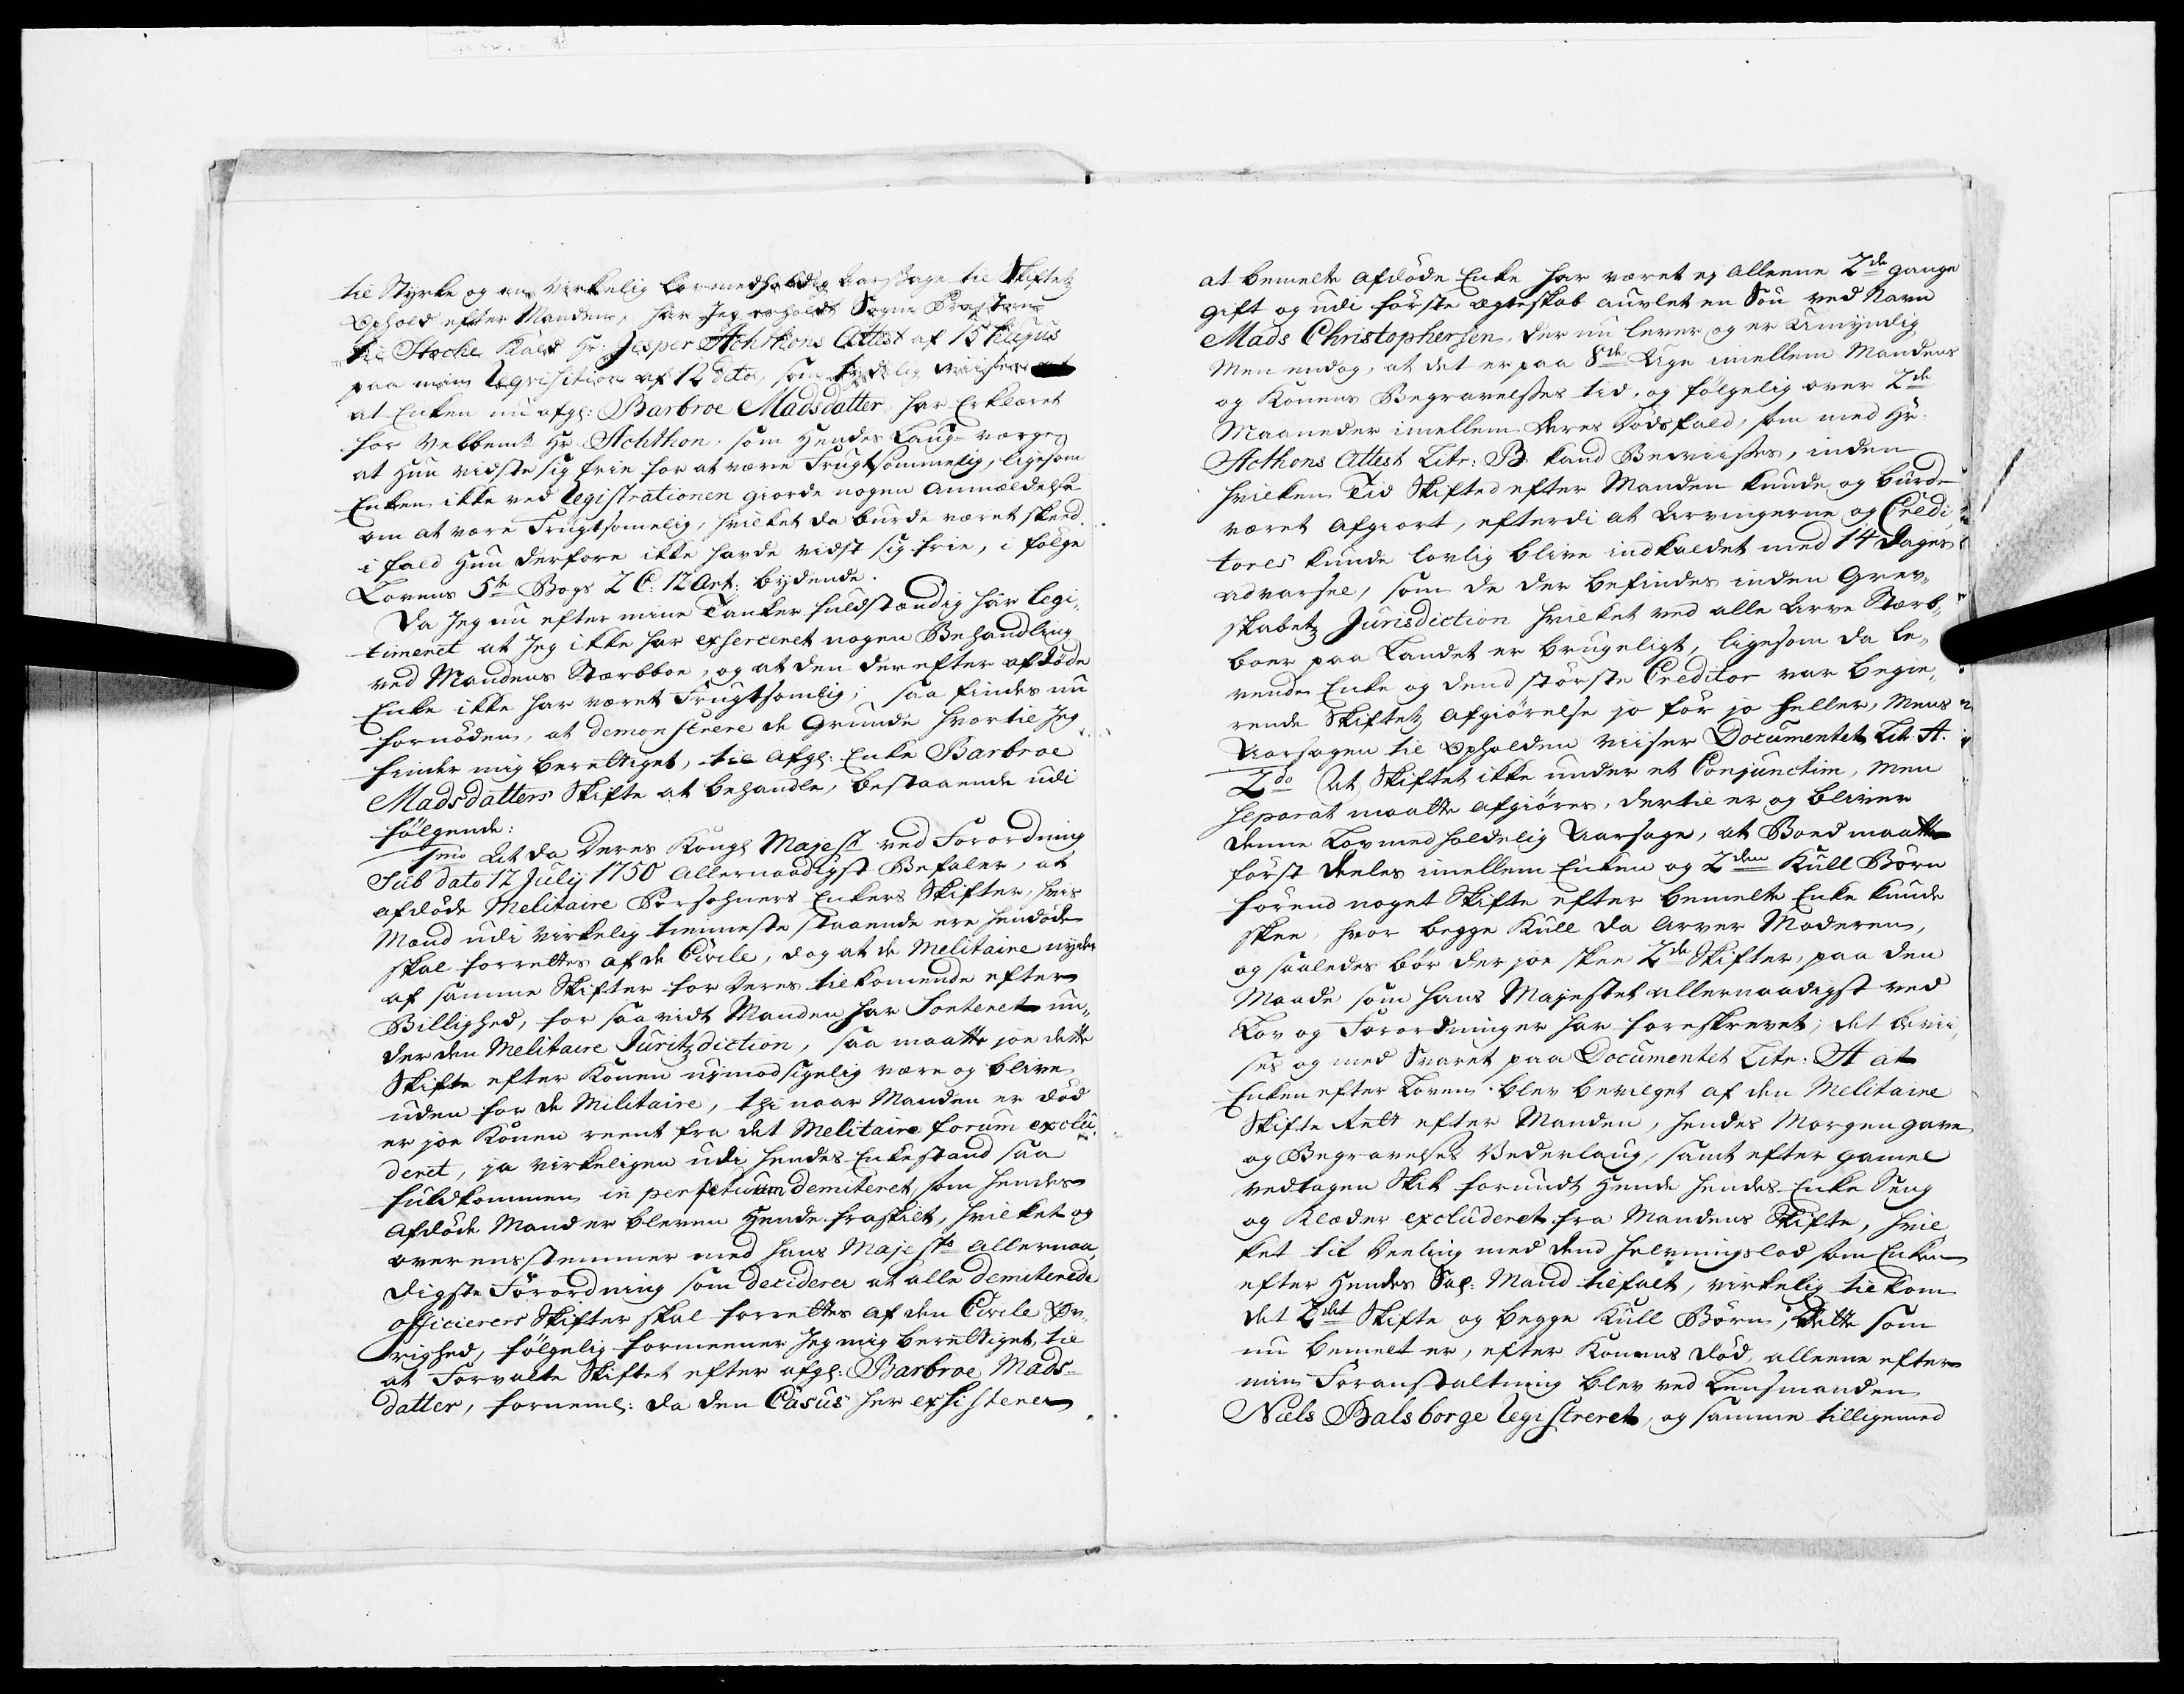 til Styrke og en Virkelig lovmedholdig Aarsage til Skiftetz
Ophold efter Manden, har Jeg erholdt Sogne Præstens
til Stoche Kald Hr: Jesper Achthons Attest af 15 Augus
paa min Reqvisition af 12 dito, som tydelig viiser
at Enken nu afg: Barbroe Madsdatter har Erklæret
for Velbemte Hr Achthon, som Hendes Laug-værge,
at Hun vidste sig frie for at være Frugtsommelig, ligesom
Enken ikke ved Registrationen giorde nogen Anmældelse
om at være Frugtsomelig, hvilket da burde været skeed
i fald Hun derfore ikke havde vidst sig frie, i følge
Lovens 5te Bogs 2 C: 12 Art: bydende.
Da Jeg nu efter mine Tanker fuldstændig har legi„
timeret at Jeg ikke har exserceret nogen Behandling
ved Mandens Stærbboe, og at den derefter afdøde
Enke ikke har været Frugtsomlig; saa findes nu
fornøden, at demonstrere de Grunde hvortil Jeg
finder mig berettiget, til afg: Enke Barbroe
Madsdatters Skifte at behandle, bestaaende udi
følgende:
1mo At da Deres Kongl Majest ved Forordning
Sub dato 17 Julij 1750 allernaadigst Befaler, at
afdøde Melitaire Persohners Enkers Skifter, hvis
Mænd udi virkelig tienneste staaende ere hendøde
skal forrettes af de Civile, dog at de Melitaire nyder
af samme Skifter for deres tilkomende efter
Billighed, for saavidt Manden har Sorteret un„
der den Melitaire Juritzdiction, saa maatte joe dette
Skifte efter Konen uimodsigelig være og blive
uden for de Militaire, thi naar Manden er død
er joe Konen reent fra det Melitaire forum exclu„
deret, ja virkeligen udi hendes Enkestand saa
fuldkommen in perpetuum demiteret, som hendes
afdøde Mand er bleven Hende fraskilt, hvilket og
overensstemmer med hans Majests allernaa„
digste Forordning som deciderer at alle demiterede
officierers Skifter skal forrettes af den Civile Øv„
righed, følgelig formeener Jeg mig berettiget, til
at Forvalte Skiftet efter afg: Barbroe Mads-
datter, fornemel: da den Casus her exsisterer
at bemelte afdøde Enke har været ej alleene 2de gange
gift og udi første Ægteskab auvlet en Søn ved Navn
Mads Christophersen, der nu lever og er Umyndig
Men endog, at det er paa 8de Uge imellem Mandens
og Konens Begravelsses tid, og følgelig over 2de
Maaneder imellem deres Dødsfald, som med Hr:
Acthons Attest Litr: B kand Beviisses, inden
hvilken Tid Skiftet efter Manden kunde og burde
været afgiort, efterdi at Arvingerne og Credi
tores kunde lovlig blive indkaldet med 14 Dages
advarsel, som de der befindes inden Grev„
skabetz Jurisdiction hvilket ved alle Arve Stærb„
boer paa Landet er brugeligt, ligesom da le„
vende Enke og dend største Creditor var begie„
rende Skiftetz afgiørelse jo før jo heller, Mens
Aarsagen til Opholden viiser Documentet Litr: A.
2do At Skiftet ikke under et Conjunctim, Men
separat maatte afgiøres, dertil er og bliver
denne Lovmedholdelig Aarsage, at Boed maatte
først deeles imellem Enken og 2den Kuld Børn
førend noget Skifte efter bemelte Enke kunde
skee, hvor begge Kull da Arver Moderen,
og saaledes bør der joe skee 2de Skifter, paa den
Maade som hans Majestet allernaadigst ved
Lov og Forordninger har foreskrevet; det bevii„
ses og med Svaret paa Documentet Litr: A at
Enken efter Loven blev bevilget af den Melitaire
Skifte Rett efter Manden, hendes Morgengave
og Begravelses Vederlaug, samt efter gamel
vedtagen Skik forundt Hende hendes Enke Seng
og Klæder excluderet fra Mandens Skifte, hvil
ket til Deeling med dend helvningslod som Enken
efter Hendes Sal: Mand tilfalt, virkelig tilkom
det 2det Skifte og begge Kull Børn, Dette som
nu bemelt er, efter Konens død, alleene efter
min Foranstaltning blev ved Lensmanden
Niels Balsborge Registreret, og samme tilligemed